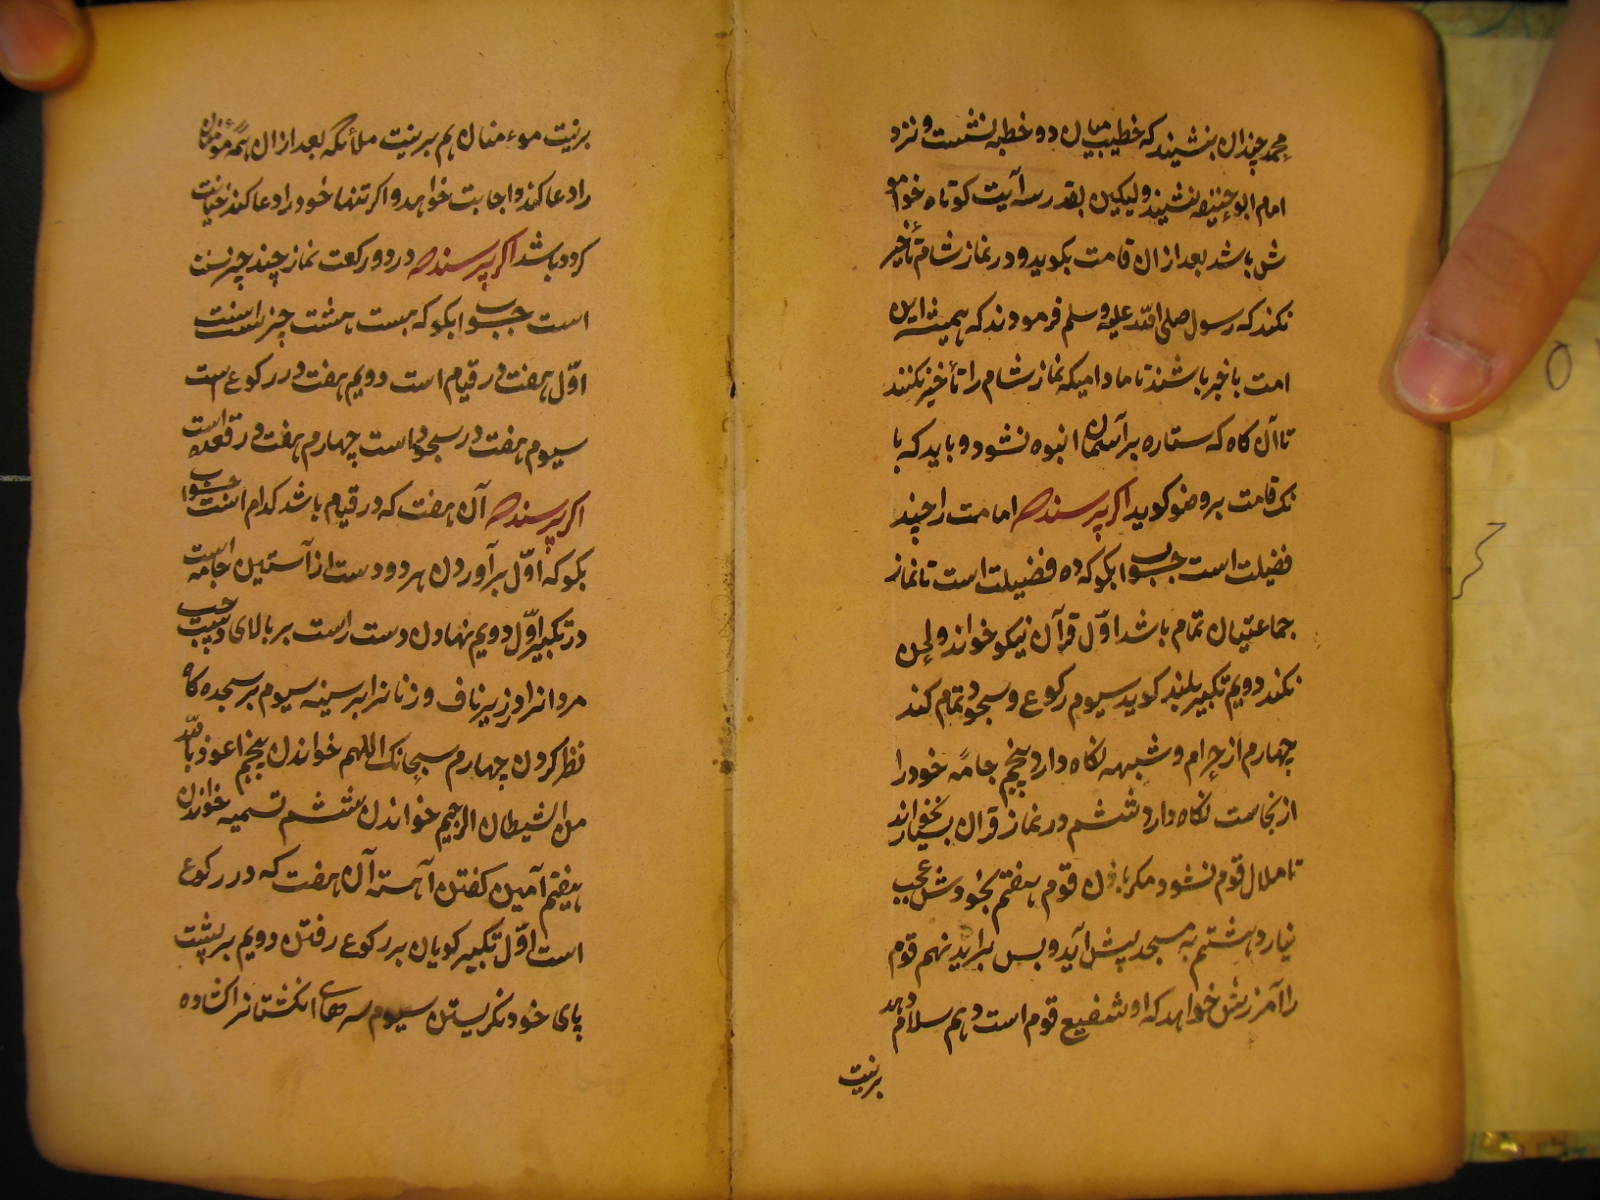 محمد چندان بنشیند که خطیب میان دو خطبه نشست و نزد
امام ابو حنیفه ننشیند و لیکین بقدر سه آیت کوتاه خوامو
ش باشد بعد ازان قامت بکوید و در نماز شام تأخیر
نکند که رسول صلی الله علیه وسلم فرمودند که همیشه این
امت باخیر باشند تا مادامیکه نماز شام را تأخیر نکنند
تا آن کاه که ستاره بر آسمان انبوه نشود و باید که با
نک قامت بر وضو کوید اکر پرسند امامت را چند
فضیلت است جواب بکو که ده فضیلت است تا نماز
جماعتیان تمام باشد اوّل قرآن نیکو خواند و لحن
نکند دویم تکبیر بلند کوید سیوم رکوع و سجود تمام کند
چهارم از حرام و شبهه نکاه دارد پنجم جامه خود را
از نجاست نکاه دارد ششم در نماز قران بسیار نخواند
تا ملال قوم نشود مکر قوم هفتم بخود عجب
نیارد هشتم به مسجد پیش آید و پس براید نهم قوم
را آمرزش خواهد که او شفیع قوم است دهم سلام دهد
برنیت
برنیت موءمنان هم برنیت ملأئکه بعد ازان همه مؤمنان
را دعا کند و اجابت خواهد و اکر تنها خود را دعا کند خیانت
کرده باشد اکر پرسند در دو رکعت نماز چند چیز سنت
است جواب بکو که بست هشت چیز است سنت
اوّل هفت در قیام است دویم هفت در رکوع است
سیوم هفت در سجود است چهارم هفت در قعده است
اکر پرسند آن هفت که در قیام باشد کدام است جواب
بکو که اوّل برآوردن هر دو دست از آستین جامه است
در تکبیر اوّل دویم نهادن دست راست بر بالای دست چپ
مردانرا در زیر ناف و زنانرا بر سینه سیوم بر سجده کاه
نظر کردن چهارم سبحانک اللهم خواندن پنجم اعوذ بالله
من الشیطان الرجیم خواندن ششم تسمیه خواندن
هفتم آمین کفتن آهسته آن هفت که در رکوع
است اوّل تکبیر کویان بر رکوع رفتن دویم بر پشت
پای خود نکریستن سیوم سرهای انکشتانرا کشاده